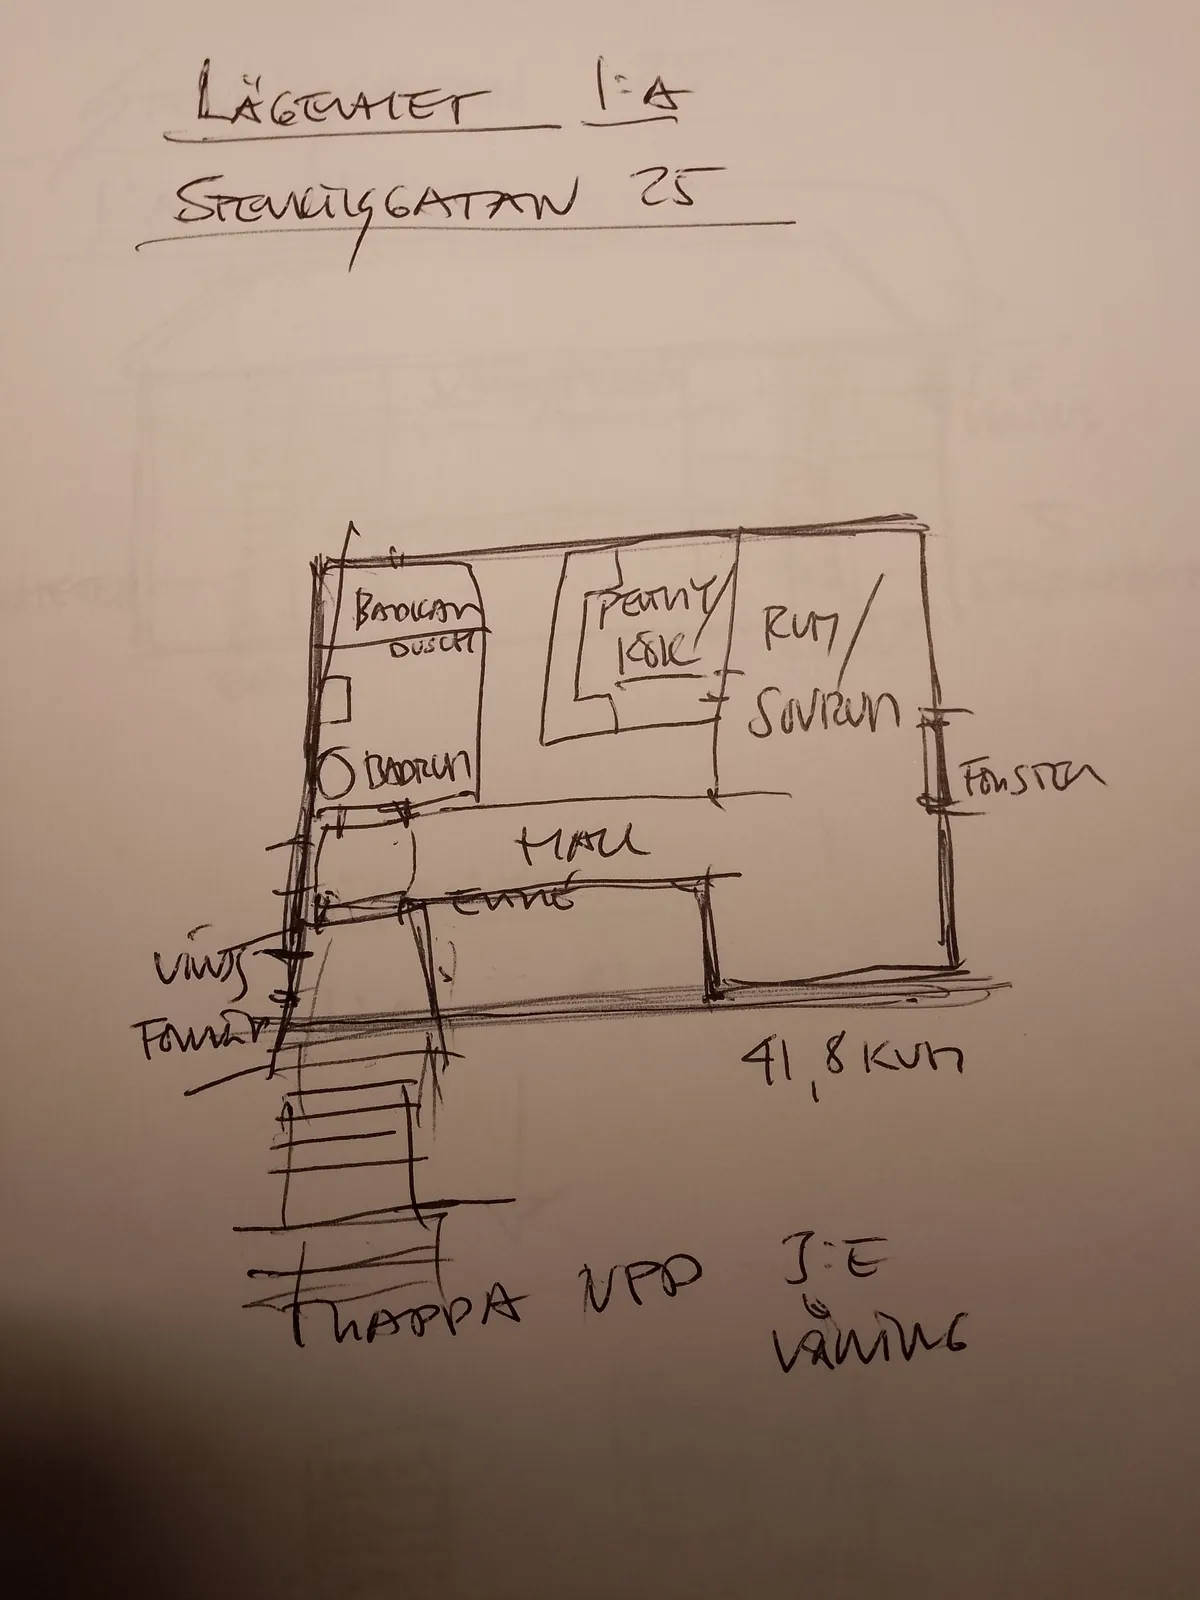 LÄGENHET 1:A
STENKILSGATAN 25
BADKAR
DUSCH
PENTRY/
KÖK
RUM/
SOVRUM
BADRUM
FÖNSTER
HALL
ENTRÉ
VINDS
FÖRRÅD
41,8 KVM
TRAPPA UPP 3:E
VÅNING